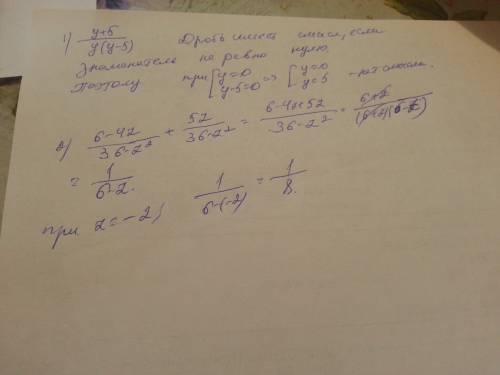 1) y+5 / y(y-5) Дробь имеет смысл, если
знаменатель не равно нулю.
Поэтому при [y=0 y-5=0 => [y=0 y=5 - нет смысла.
2) 6-4z / 36-z² + 5z / 36-z² = 6-4z+5z / 36-z² = 6+z / (6+z)(6-z)
= 1 / 6-z.
при z=-2; 1 / 6-(-2) = 1 / 8.